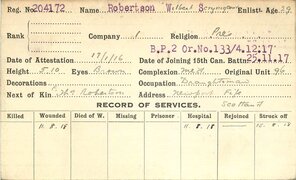 Reg. No. 204172 Name, Robertson Enlistt. Age 29
Rank Company 1 Religion Pres
B.P.2 Or.No.133/4.12.17
Date of Attestation 17/1/16 Date of Joining 15th Can. Battn 25.11.17
Height 5.10 Eyes Brown Complexion Med Original Unit 96
Decorations Occupation Draughtsman
Next of Kin Robertson Address Newport Fife
Scotland
RECORD OF SERVICES.
Killed Wounded Died of W. Missing Prisoner Hospital Rejoined Struck off
11.8.18 11.8.18 15.8.18